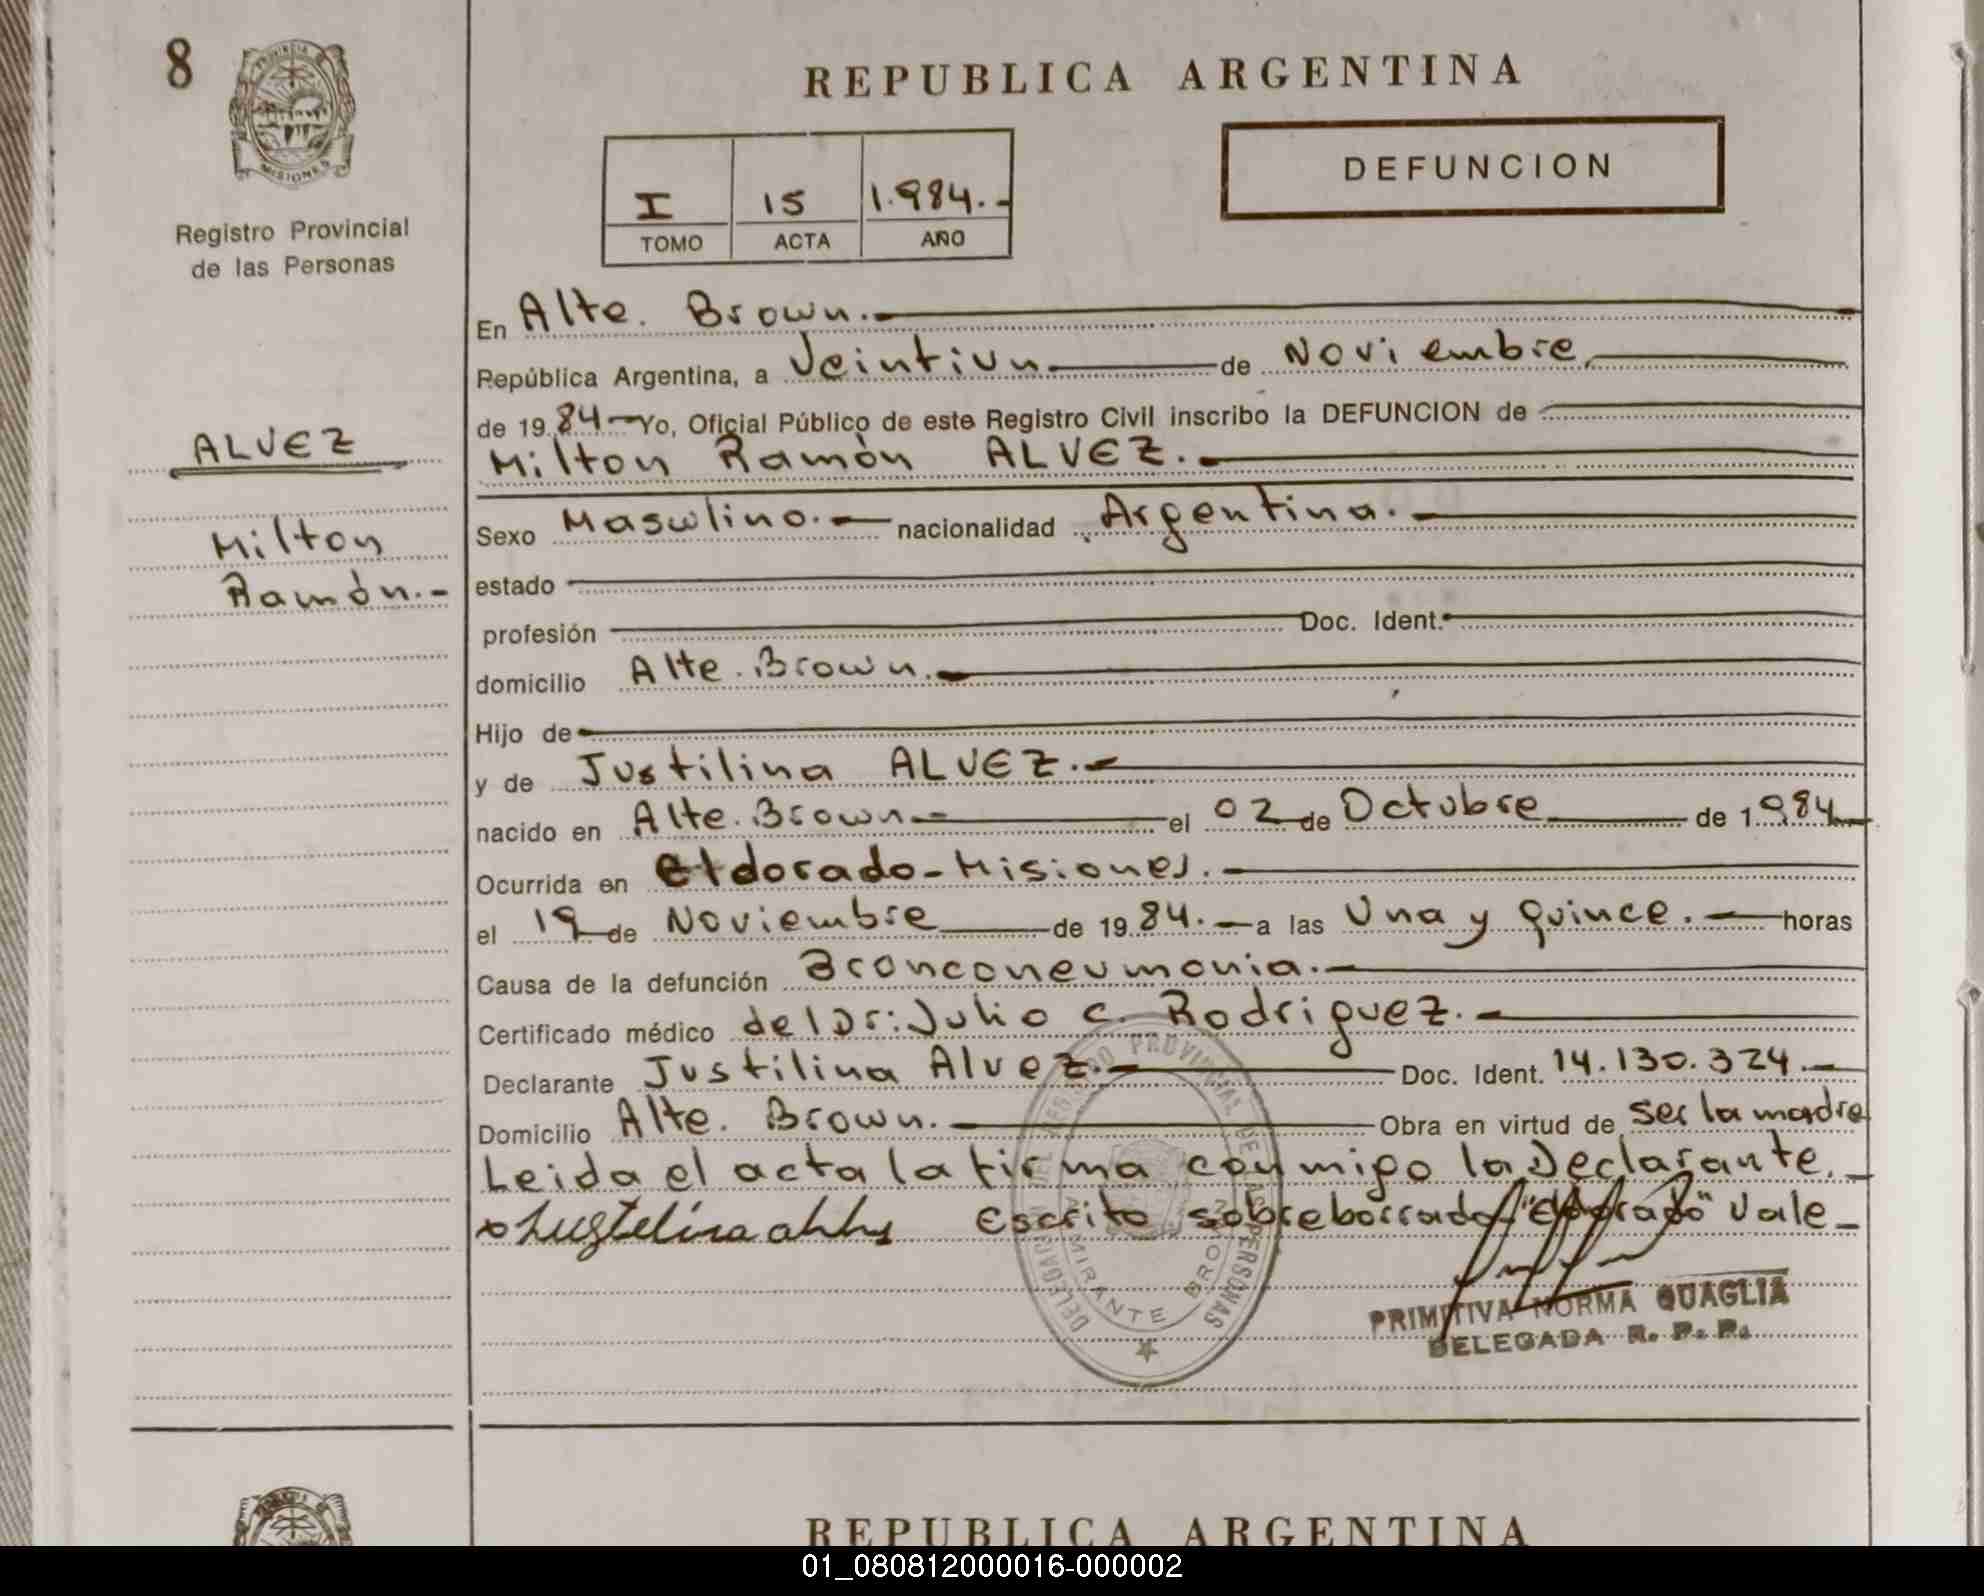 8
PROVINCIA DE
MISIONES
Registro Provincial
de las Personas
ALVEZ
Milton
Ramón.-
REPUBLICA ARGENTINA
I 15 1.984.-
TOMO ACTA AÑO
DEFUNCION
En Alte. Brown.
República Argentina, a Veintiun de Noviembre
de 1984 Yo, Oficial Público de este Registro Civil inscribo la DEFUNCION de
Milton Ramón ALVEZ.
Sexo Masculino. nacionalidad Argentina.
estado
profesión Doc. Ident.
domicilio Alte. Brown.
Hijo de
y de Justilina ALVEZ.
nacido en Alte. Brown el 02 de Octubre de 1984
Ocurrida en Eldorado-Misiones.
el 19 de Noviembre de 1984. a las Una y quince. horas
Causa de la defunción Bronconeumonia.
Certificado médico del Dr: Julio C. Rodriguez.
Declarante Justilina Alvez. Doc. Ident. 14.130.324
Domicilio Alte. Brown. Obra en virtud de ser la madre
Leida el acta la firma conmigo la Declarante.
Escrito sobreborrado "Eldorado" Vale
DELEGACION DEL REGISTRO PROVINCIAL DE LAS PERSONAS
ALMIRANTE BROWN
PRIMITIVA NORMA QUAGLIA
DELEGADA R. P. P.
REPUBLICA ARGENTINA
01_080812000016-000002